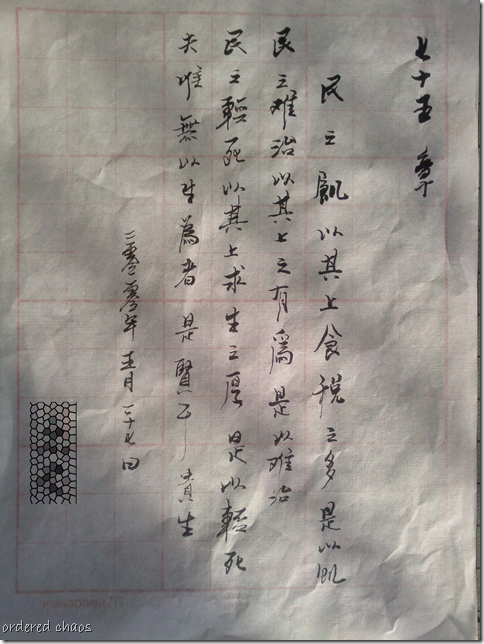 七十五章
民之飢以其上食税之多是以飢
民之难治以其上之有為是以难治
民之輕死以其上求生之厚是以輕死
夫唯無以生為者是賢于貴生
年月二十七日
ordered chaos